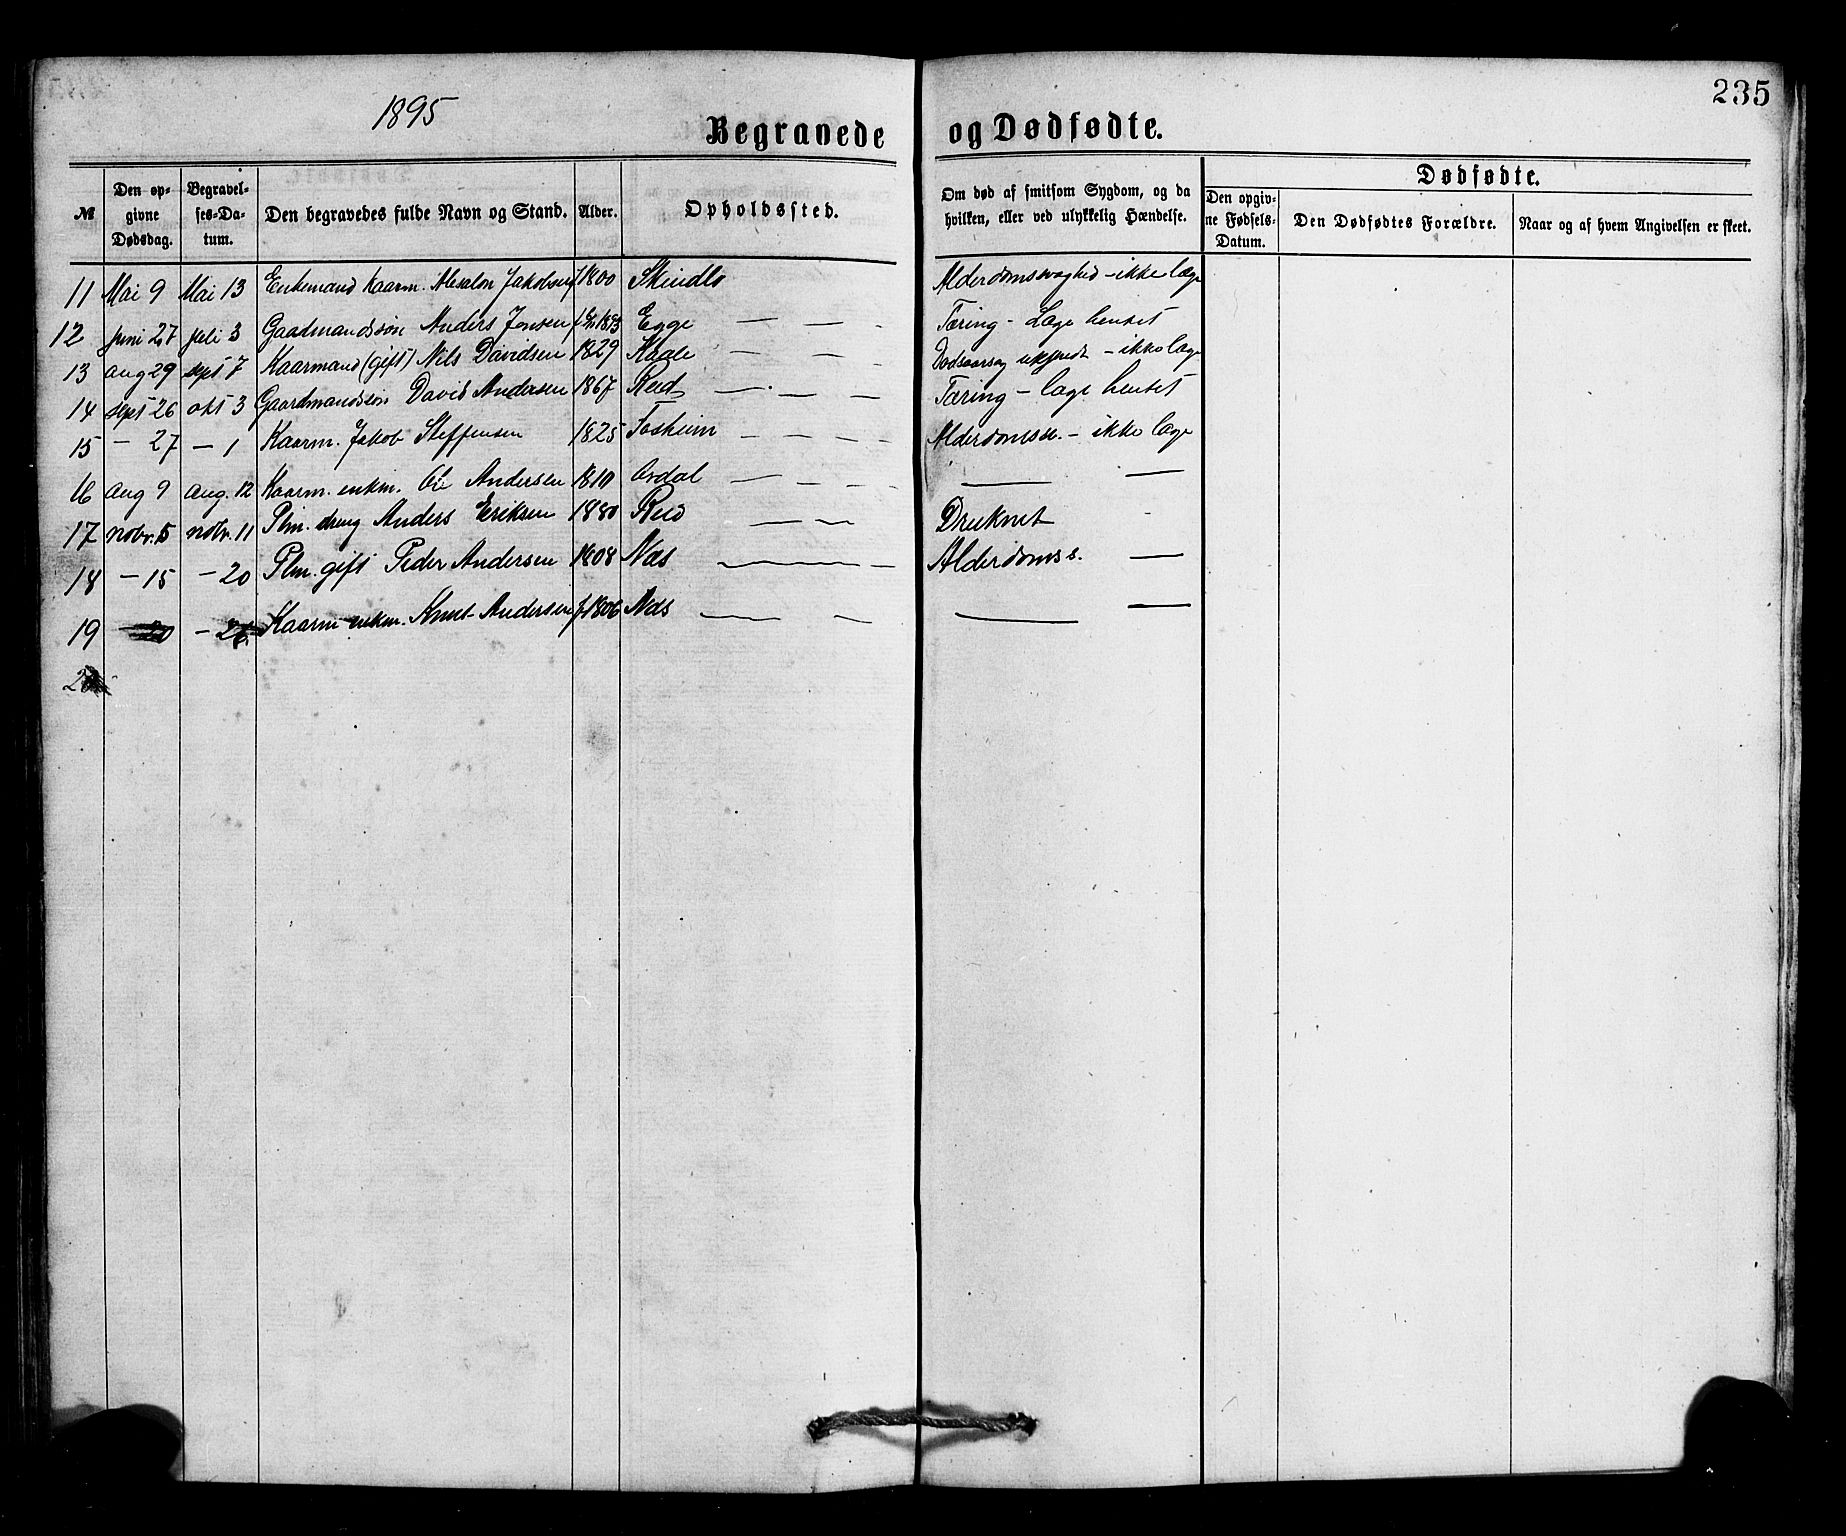 235
1895
Begravede og Dødfødte.
№ Den opgivne Dødsdag. Begravelses-Datum. Den begravedes fulde Navn og Stand. Alder. Opholdssted. Om død af smitsom Sygdom, og da hvilken, eller ved ulykkelig Hændelse.
Dødfødte.
Den opgivne Fødsels-Datum. Den Dødfødtes Forældre. Naar og af hvem Angivelsen er skeet.
11 Mai 9 Mai 13 Enkemand Kaarm. Absalon Jakobsen f 1800 Skindlo Alderdomssvaghed - ikke læge
12 Juni 27 Juli 3 Gaadmandssøn Anders Jonsen f 1893 Egge — — - Tæring - Læge hentet
13 aug 29 sept 7 Kaarmand (gift) Nils Davidsen 1829 Kaale — — — Dødsaarsag - ikke læge
14 sept 26 okt 3 Gaardmandssøn David Andersen 1867 Reed — — — Tæring - læge hentet
15 — 27 — 1 Kaarm. Jakob Steffensen 1825 Foskeim — — — — Alderdomssv. - ikke læge
16 aug 9 aug. 12 Kaarm. enkm. Ole Andersen 1810 Ordal — — — — —
17 novr. 5 novr. 11 Plm. dreng Anders Eriksen 1880 Reed — — Druknet
18 — 15 — 20 Plm. gift Peder Andersen 1808 Næs — — — Alderdomss. —
19 — 20 — 26 Kaarm enkm. Knut Andersen f 1806 Næs — — — — —